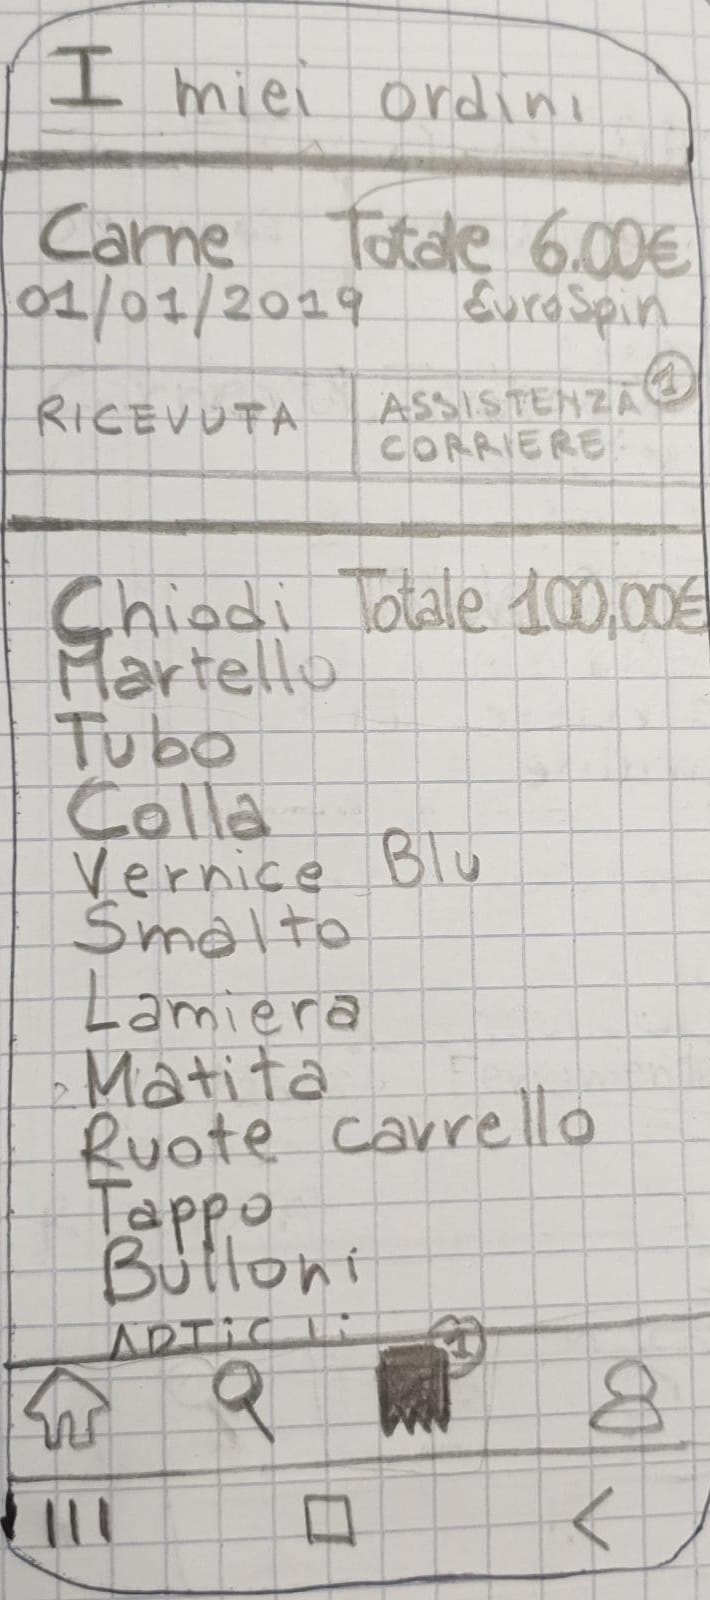 I miei ordini
Carne Totale 6.00€
01/01/2019 EuroSpin
RICEVUTA ASSISTENZA 1
CORRIERE
Chiodi Totale 100,00€
Martello
Tubo
Colla
Vernice Blu
Smalto
Lamiera
Matita
Ruote carrello
Tappo
Bulloni
1